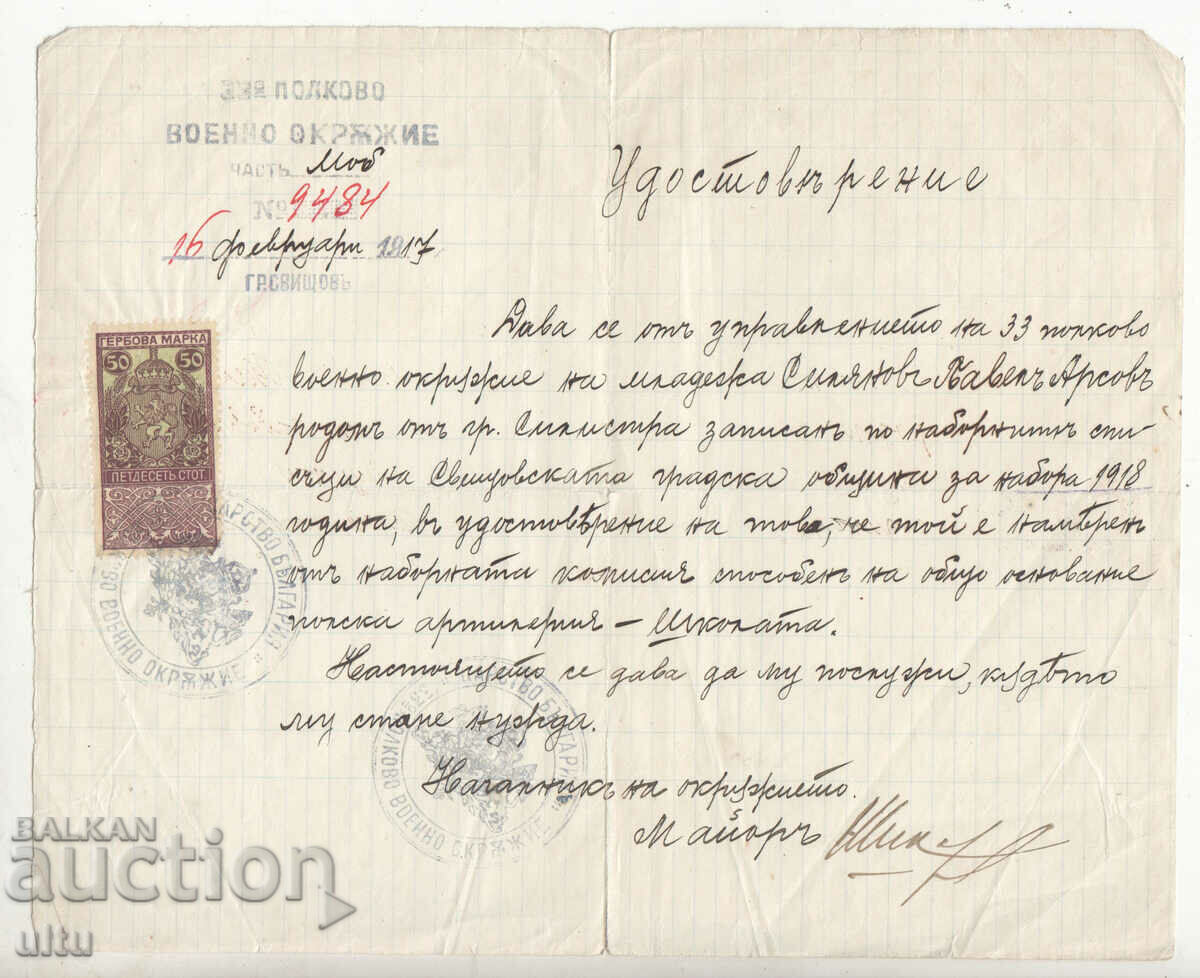 33º ПОЛКОВО
ВОЕННО ОКРѪЖИЕ
ЧАСТЬ Моб
№ 9484
16 февруари 1917
ГР.СВИЩОВЪ
Удостовѣрение
ГЕРБОВА МАРКА
50 50
ПЕТДЕСЕТЬ СТОТ.
Дава се отъ управлението на 33 полково
военно окрѫжие на младежа Силяновъ Павелъ Арсовъ
родомъ отъ гр. Силистра записанъ по наборнитѣ спи-
съци на Свищовската градска община за набора 1918
година, въ удостовѣрение на това, че той е намѣренъ
отъ наборната комисия способенъ на общо основание
полска артилерия – Школата.
Настоящето се дава да му послужи, кѫдѣто
му стане нужда.
Началникъ на окрѫжието.
Майоръ
ЦАРСТВО БЪЛГАРИЯ
ВОЕННО ОКРѪЖИЕ
ЦАРСТВО БЪЛГАРИЯ
ПОЛКОВО ВОЕННО ОКРѪЖИЕ
BALKAN
auction
ultu